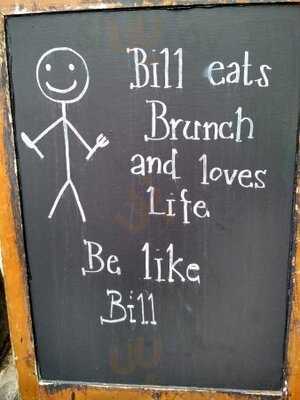 Bill eats
Brunch
and loves
Life
Be like
Bill